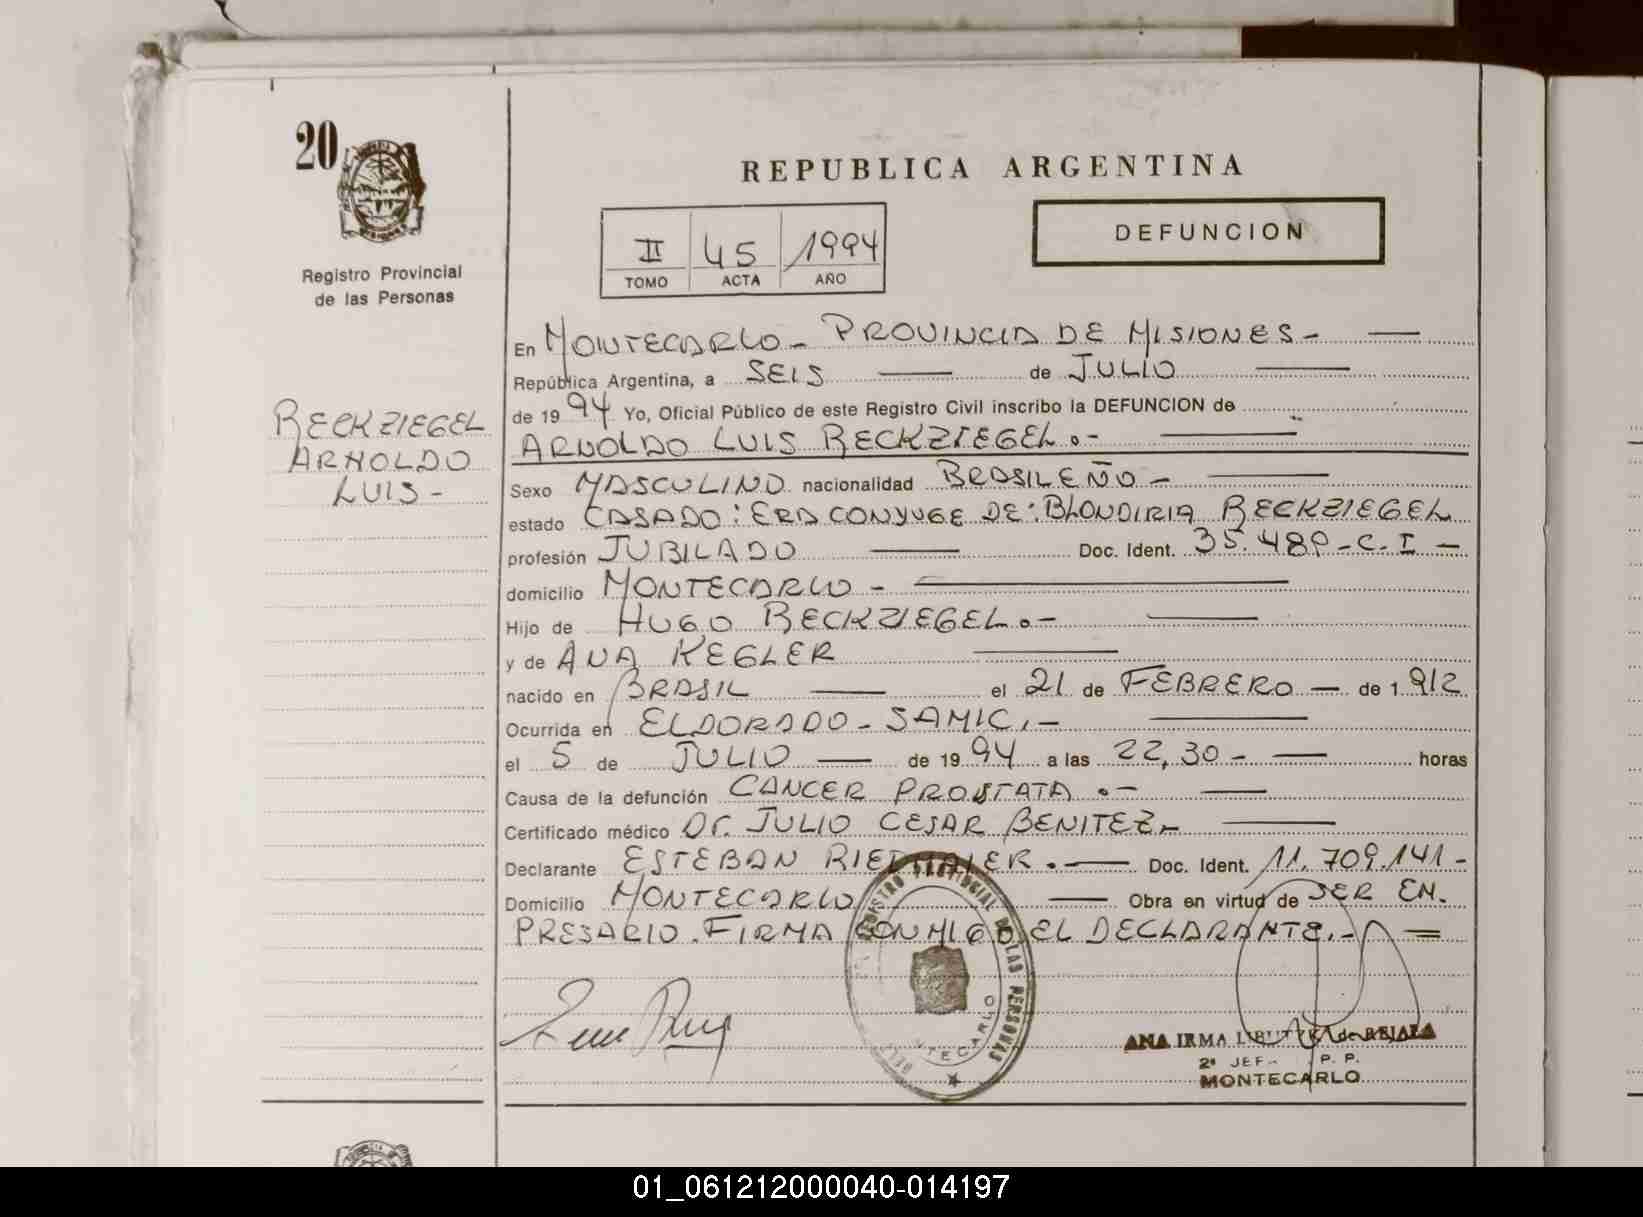 20
Registro Provincial
de las Personas
BECKZIEGEL
ARNOLDO
LUIS -
REPUBLICA ARGENTINA
II 45 1994
TOMO ACTA AÑO
DEFUNCION
En MONTECARLO - PROVINCIA DE MISIONES -
República Argentina, a SEIS de JULIO
de 19 94 Yo, Oficial Público de este Registro Civil inscribo la DEFUNCION de
ARNOLDO LUIS BECKZIEGEL.-
Sexo MASCULINO nacionalidad BRASILEÑO -
estado CASADO: ERA CONYUGE DE: BLONDIRIA BECKZIEGEL
profesión JUBILADO Doc. Ident. C.I -
domicilio MONTECARLO -
Hijo de HUGO BECKZIEGEL.-
y de ANA KEGLER
nacido en BRASIL el 21 de FEBRERO - de 1 912
Ocurrida en ELDORADO - SAMIC.-
el 5 de JULIO de 19 94 a las 22,30 - horas
Causa de la defunción CANCER PROSTATA .-
Certificado médico Dr. JULIO CESAR BENITEZ -
Declarante ESTEBAN RIEDMAIER . - Doc. Ident. 11.709.141 -
Domicilio MONTECARLO Obra en virtud de SER EM-
PRESARIO. FIRMA CONMIGO EL DECLARANTE.-
REGISTRO PROVINCIAL DE LAS PERSONAS
ANA IRMA de BEJALA
2º JEF P. P.
MONTECARLO
01_061212000040-014197